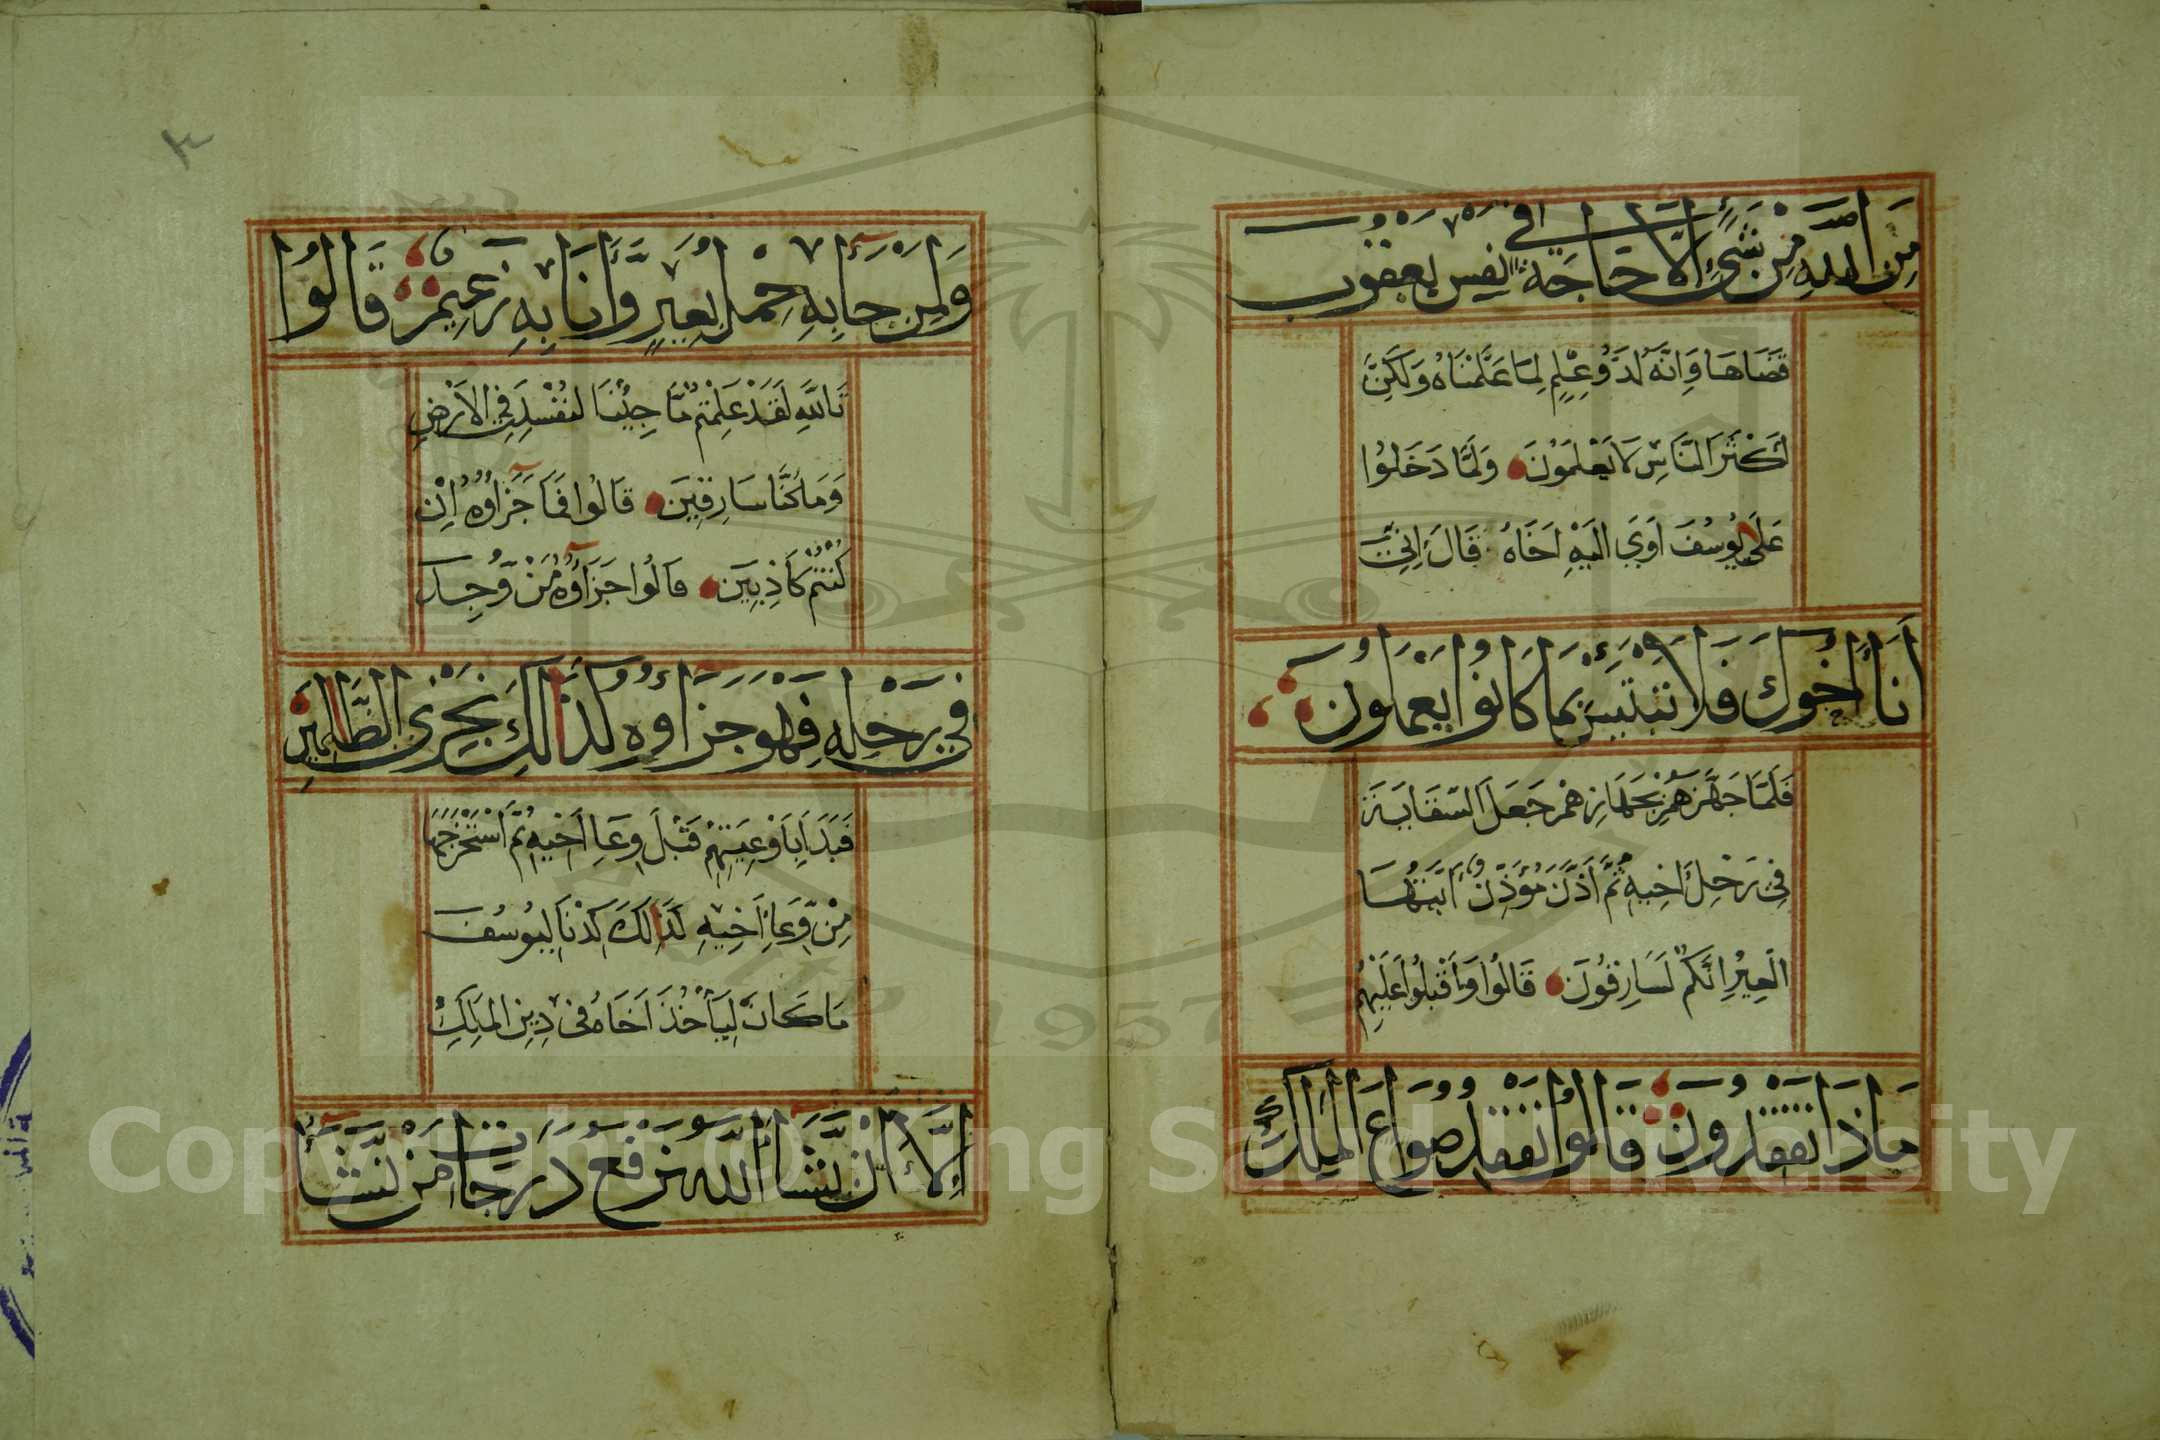 مِنَ اللهِ مِنْ شَيْءٍ اِلَّا حَاجَةً فِي نَفْسِ يَعْقُوبَ
قَضَاهَا وَاِنَّهُ لَذُو عِلْمٍ لِمَا عَلَّمْنَاهُ وَلَكِنَّ
اَكْثَرَ النَّاسِ لَا يَعْلَمُونَ وَلَمَّا دَخَلُوا
عَلَى يُوسُفَ اَوَى اِلَيْهِ اَخَاهُ قَالَ اِنِّي
اَنَا اَخُوكَ فَلَا تَبْتَئِسْ بِمَا كَانُوا يَعْمَلُونَ
فَلَمَّا جَهَّزَهُمْ بِجَهَازِهِمْ جَعَلَ السِّقَايَةَ
فِي رَحْلِ اَخِيهِ ثُمَّ اَذَّنَ مُؤَذِّنٌ اَيَّتُهَا
الْعِيرُ اِنَّكُمْ لَسَارِقُونَ قَالُوا وَاَقْبَلُوا عَلَيْهِمْ
مَاذَا تَفْقِدُونَ قَالُوا نَفْقِدُ صُوَاعَ الْمَلِكِ
وَلِمَنْ جَا بِهِ حِمْلُ بَعِيرٍ وَاَنَا بِهِ زَعِيمٌ قَالُوا
تَاللَّهِ لَقَدْ عَلِمْتُمْ مَا جِئْنَا لِنُفْسِدَ فِي الْاَرْضِ
وَمَا كُنَّا سَارِقِينَ قَالُوا فَمَا جَزَاؤُهُ اِنْ
كُنْتُمْ كَاذِبِينَ قَالُوا جَزَاؤُهُ مَنْ وُجِدَ
فِي رَحْلِهِ فَهُوَ جَزَاؤُهُ كَذَالِكَ نَجْزِي الظَّالِمِينَ
فَبَدَاَ بِاَوْعِيَتِهِمْ قَبْلَ وِعَا اَخِيهِ ثُمَّ اسْتَخْرَجَهَا
مِنْ وِعَا اَخِيهِ كَذَالِكَ كِدْنَا لِيُوسُفَ
مَا كَانَ لِيَأْخُذَ اَخَاهُ فِي دِينِ الْمَلِكِ
اِلَّا اَنْ يَشَا اللَّهُ نَرْفَعُ دَرَجَاتٍ مَنْ نَشَا
Copyright © King Saud University
1957